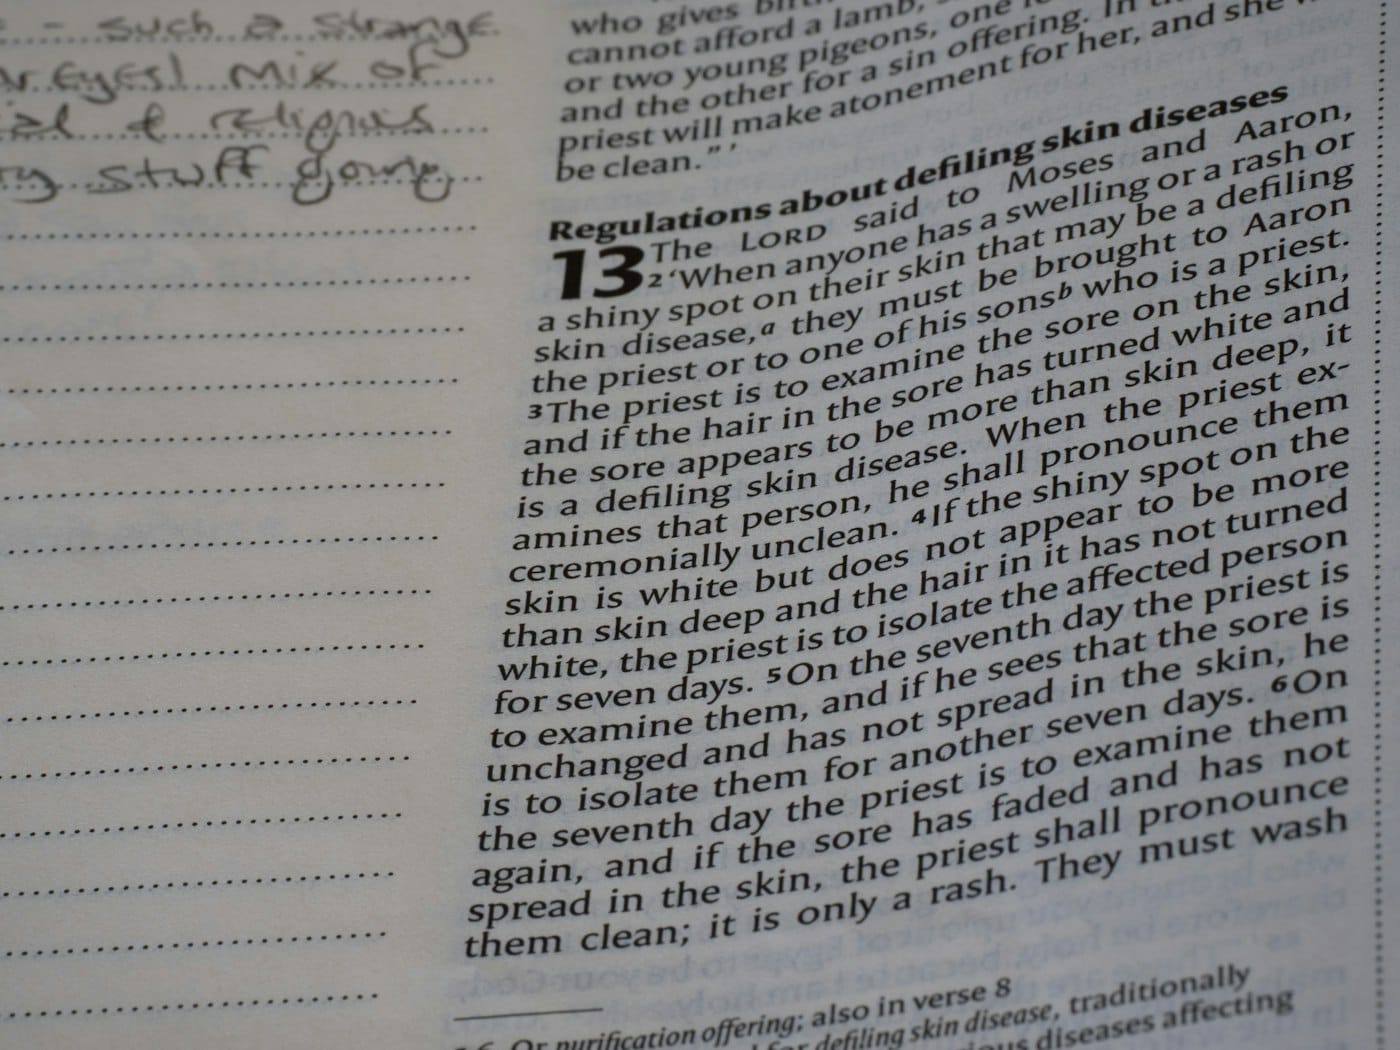 - such a strange
Eyes! Mix of
& religious
stuff going
who gives
cannot afford a lamb,
or two young pigeons, one
and the other for a sin offering. In
priest will make atonement for her, and she
be clean.” ’
Regulations about defiling skin diseases
13 The LORD said to Moses and Aaron,
2 ‘When anyone has a swelling or a rash or
a shiny spot on their skin that may be a defiling
skin disease,a they must be brought to Aaron
the priest or to one of his sonsb who is a priest.
3 The priest is to examine the sore on the skin,
and if the hair in the sore has turned white and
the sore appears to be more than skin deep, it
is a defiling skin disease. When the priest ex-
amines that person, he shall pronounce them
ceremonially unclean. 4 If the shiny spot on the
skin is white but does not appear to be more
than skin deep and the hair in it has not turned
white, the priest is to isolate the affected person
for seven days. 5 On the seventh day the priest is
to examine them, and if he sees that the sore is
unchanged and has not spread in the skin, he
is to isolate them for another seven days. 6 On
the seventh day the priest is to examine them
again, and if the sore has faded and has not
spread in the skin, the priest shall pronounce
them clean; it is only a rash. They must wash
Or purification offering; also in verse 8
for defiling skin disease, traditionally
diseases affecting